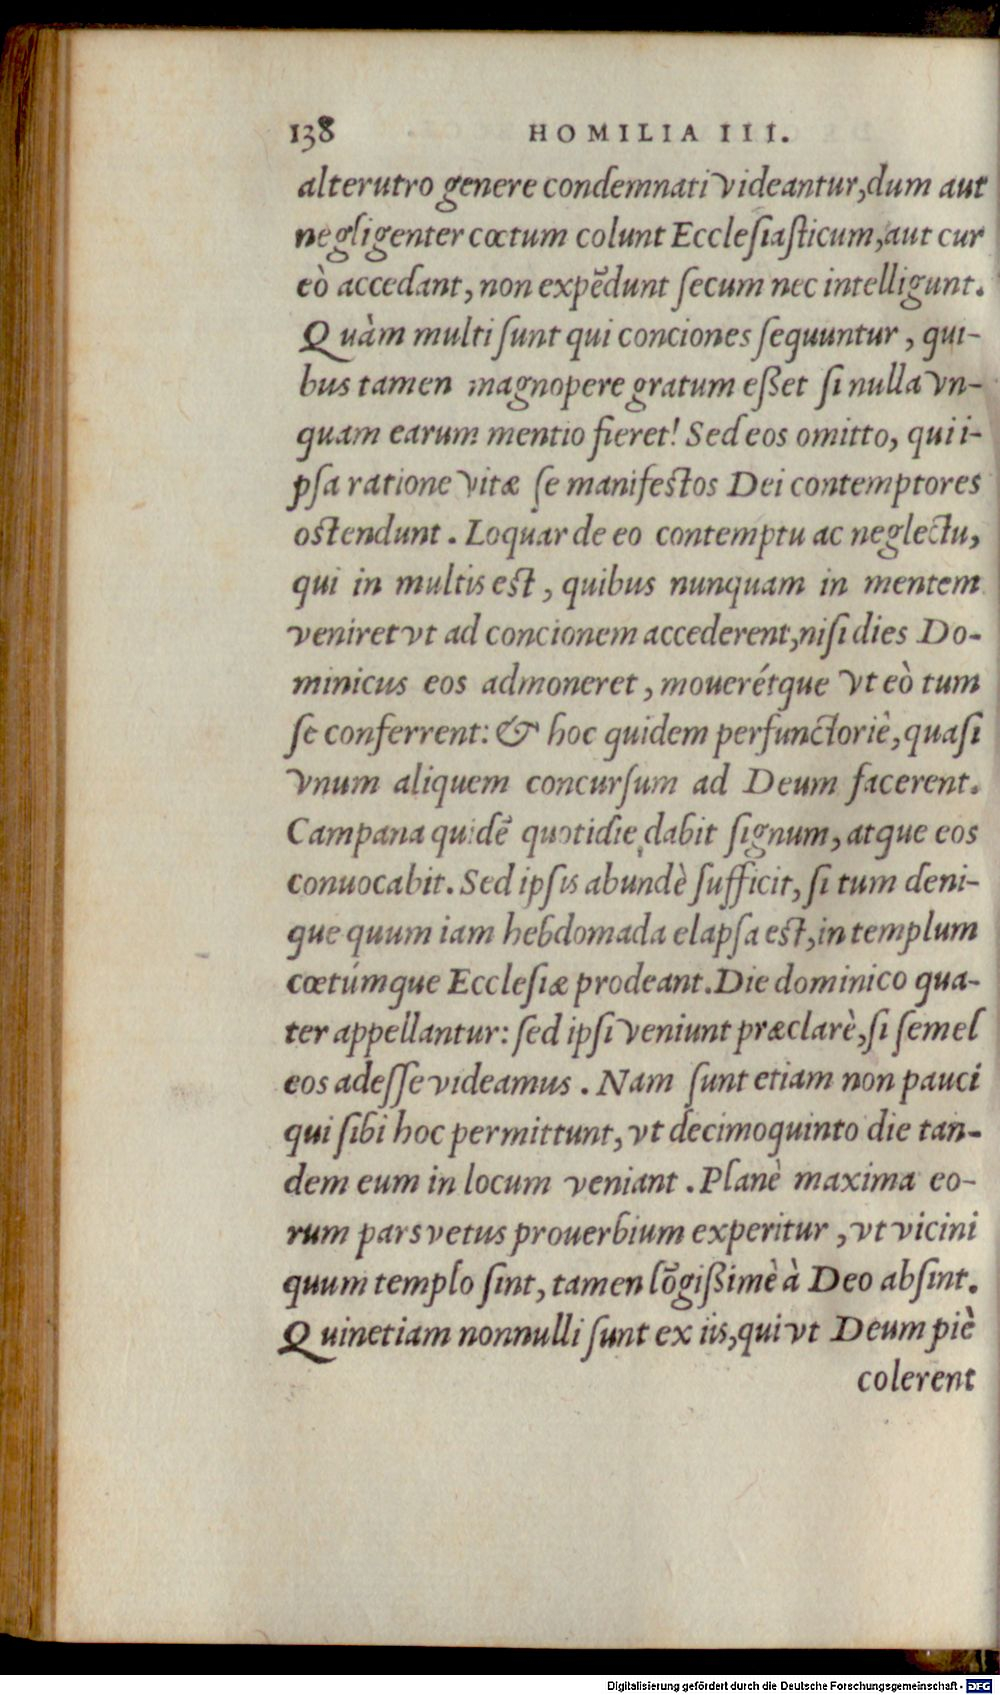 138 HOMILIA III.
alterutro genere condemnati videantur, dum aut
negligenter cœtum colunt Ecclesiaſticum, aut cur
eò accedant, non expēdunt ſecum nec intelligunt.
Quàm multi ſunt qui conciones ſequuntur, qui-
bus tamen magnopere gratum eßet ſi nulla vn-
quam earum mentio fieret! Sed eos omitto, qui i-
pſa ratione vitæ ſe manifeſtos Dei contemptores
oſtendunt. Loquar de eo contemptu ac neglectu,
qui in multis eſt, quibus nunquam in mentem
veniret vt ad concionem accederent, niſi dies Do-
minicus eos admoneret, mouerétque vt eò tum
ſe conferrent: & hoc quidem perfunctoriè, quaſi
vnum aliquem concurſum ad Deum facerent.
Campana quidē quotidie dabit ſignum, atque eos
conuocabit. Sed ipſis abundè ſufficit, ſi tum deni-
que quum iam hebdomada elapſa eſt, in templum
cœtúmque Eccleſiæ prodeant. Die dominico qua-
ter appellantur: ſed ipſi veniunt præclarè, ſi ſemel
eos adeſſe videamus. Nam ſunt etiam non pauci
qui ſibi hoc permittunt, vt decimoquinto die tan-
dem eum in locum veniant. Planè maxima eo-
rum pars vetus prouerbium experitur, vt vicini
quum templo ſint, tamen lōgißimè à Deo abſint.
Quinetiam nonnulli ſunt ex iis, qui vt Deum piè
colerent
Digitalisierung gefördert durch die Deutsche Forschungsgemeinschaft - DFG